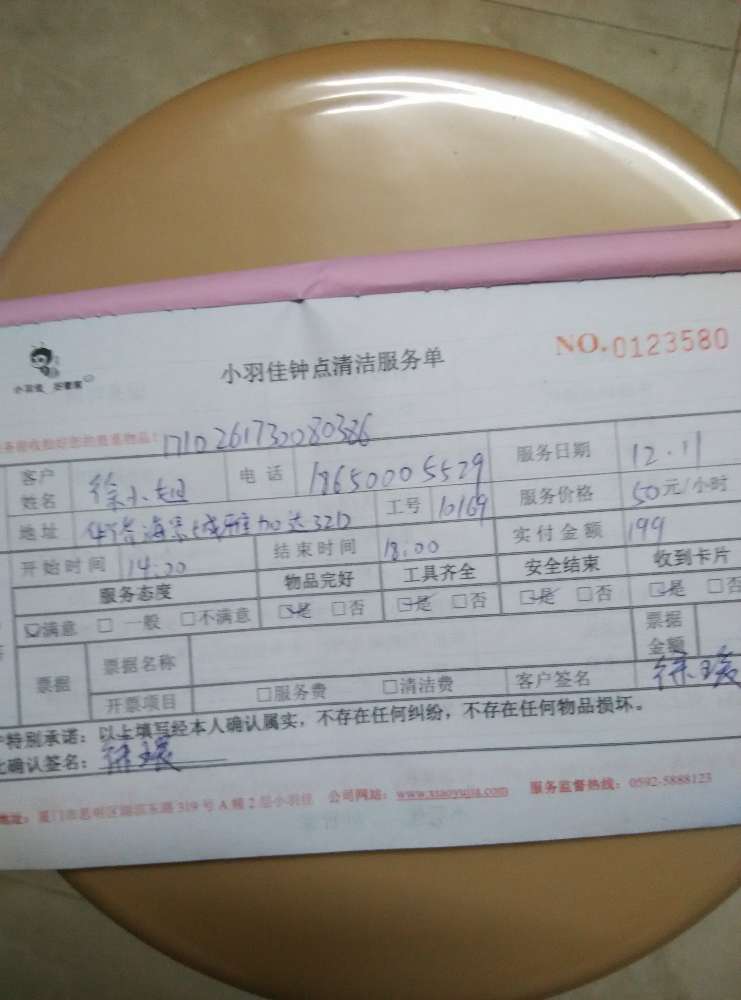 小羽佳 好管家
小羽佳钟点清洁服务单
NO.0123580
1710261732080386
客户姓名 徐小姐 电话 18650005529 服务日期 12.11
地址 海景城雅加达321D 工号 10169 服务价格 50元/小时
开始时间 14:00 结束时间 18:00 实付金额 199
服务态度 物品完好 工具齐全 安全结束 收到卡片
☑满意 □一般 □不满意 ☑是 □否 ☑是 □否 ☑是 □否 ☑是 □否
票据 票据名称 票据金额
开票项目 □服务费 □清洁费 客户签名 徐瑗
特别承诺：以上填写经本人确认属实，不存在任何纠纷，不存在任何物品损坏。
确认签名：徐瑗
地址：厦门市思明区湖滨东路319号A幢2层小羽佳 公司网站：www.xiaoyujia.com 服务监督热线：0592-5888123